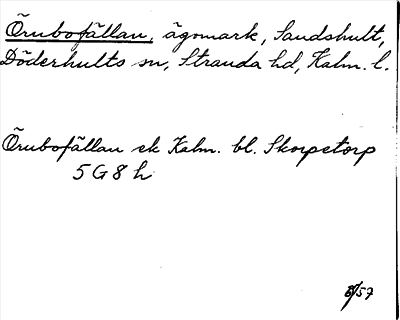 Örnbofällan, ägomark, Sandshult,
Döderhults sn, Stranda hd, Kalm. l.
Örnbofällan ek Kalm. bl. Skorpetorp
5 G 8 h
/57